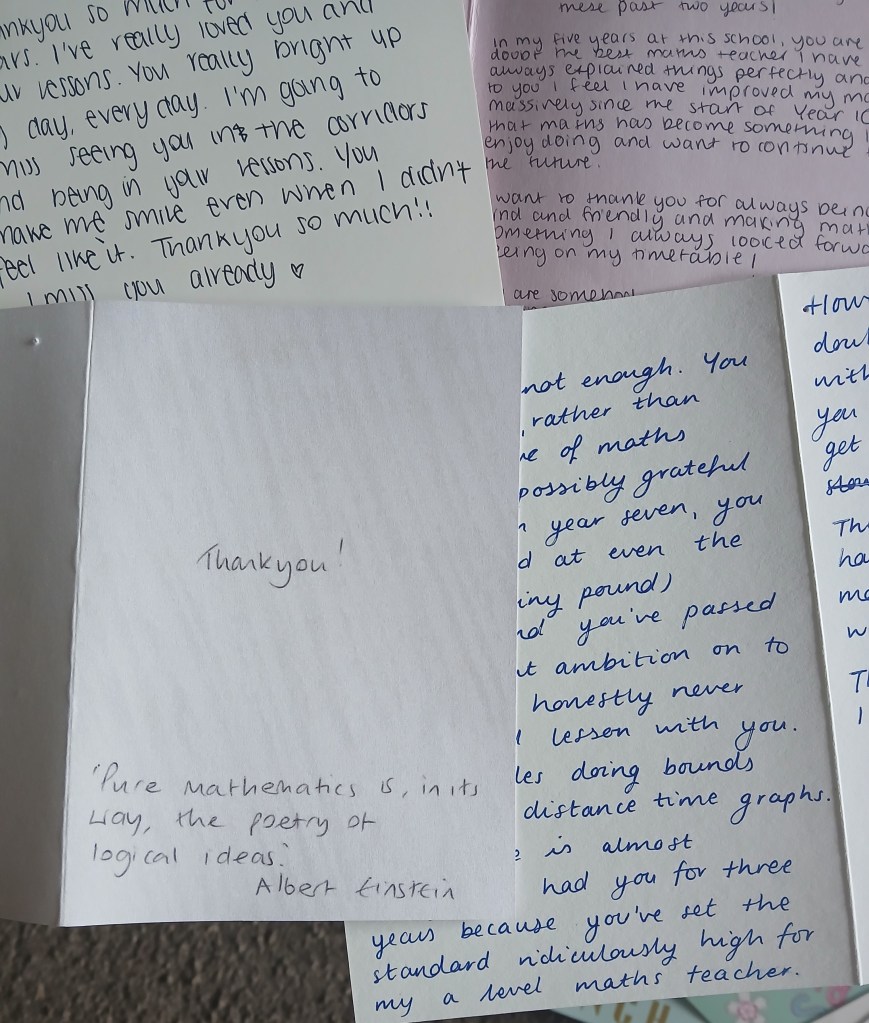 so much for
I've really loved you and
lessons. You really bright up
day, every day. I'm going to
miss seeing you in the corridors
being in your lessons. You
make me smile even when I didn't
feel like it. Thankyou so much!!
I miss you already ♥
these past two years!
in my five years at this school, you are
doubt the best maths teacher I have
always explained things perfectly and
to you I feel I have improved my
massively since the start of Year
that maths has become something I
enjoy doing and want to continue
the future.
want to thank you for always being
and friendly and making
something I always looked
being on my timetable!
are
Thankyou!
'Pure mathematics is, in its
way, the poetry of
logical ideas.'
Albert Einstein
not enough. You
rather than
of maths
possibly grateful
year seven, you
at even the
pound)
you've passed
ambition on to
honestly never
lesson with you.
doing bounds
distance time graphs.
is almost
had you for three
years because you've set the
standard ridiculously high for
my a level maths teacher.
with
you
get
I